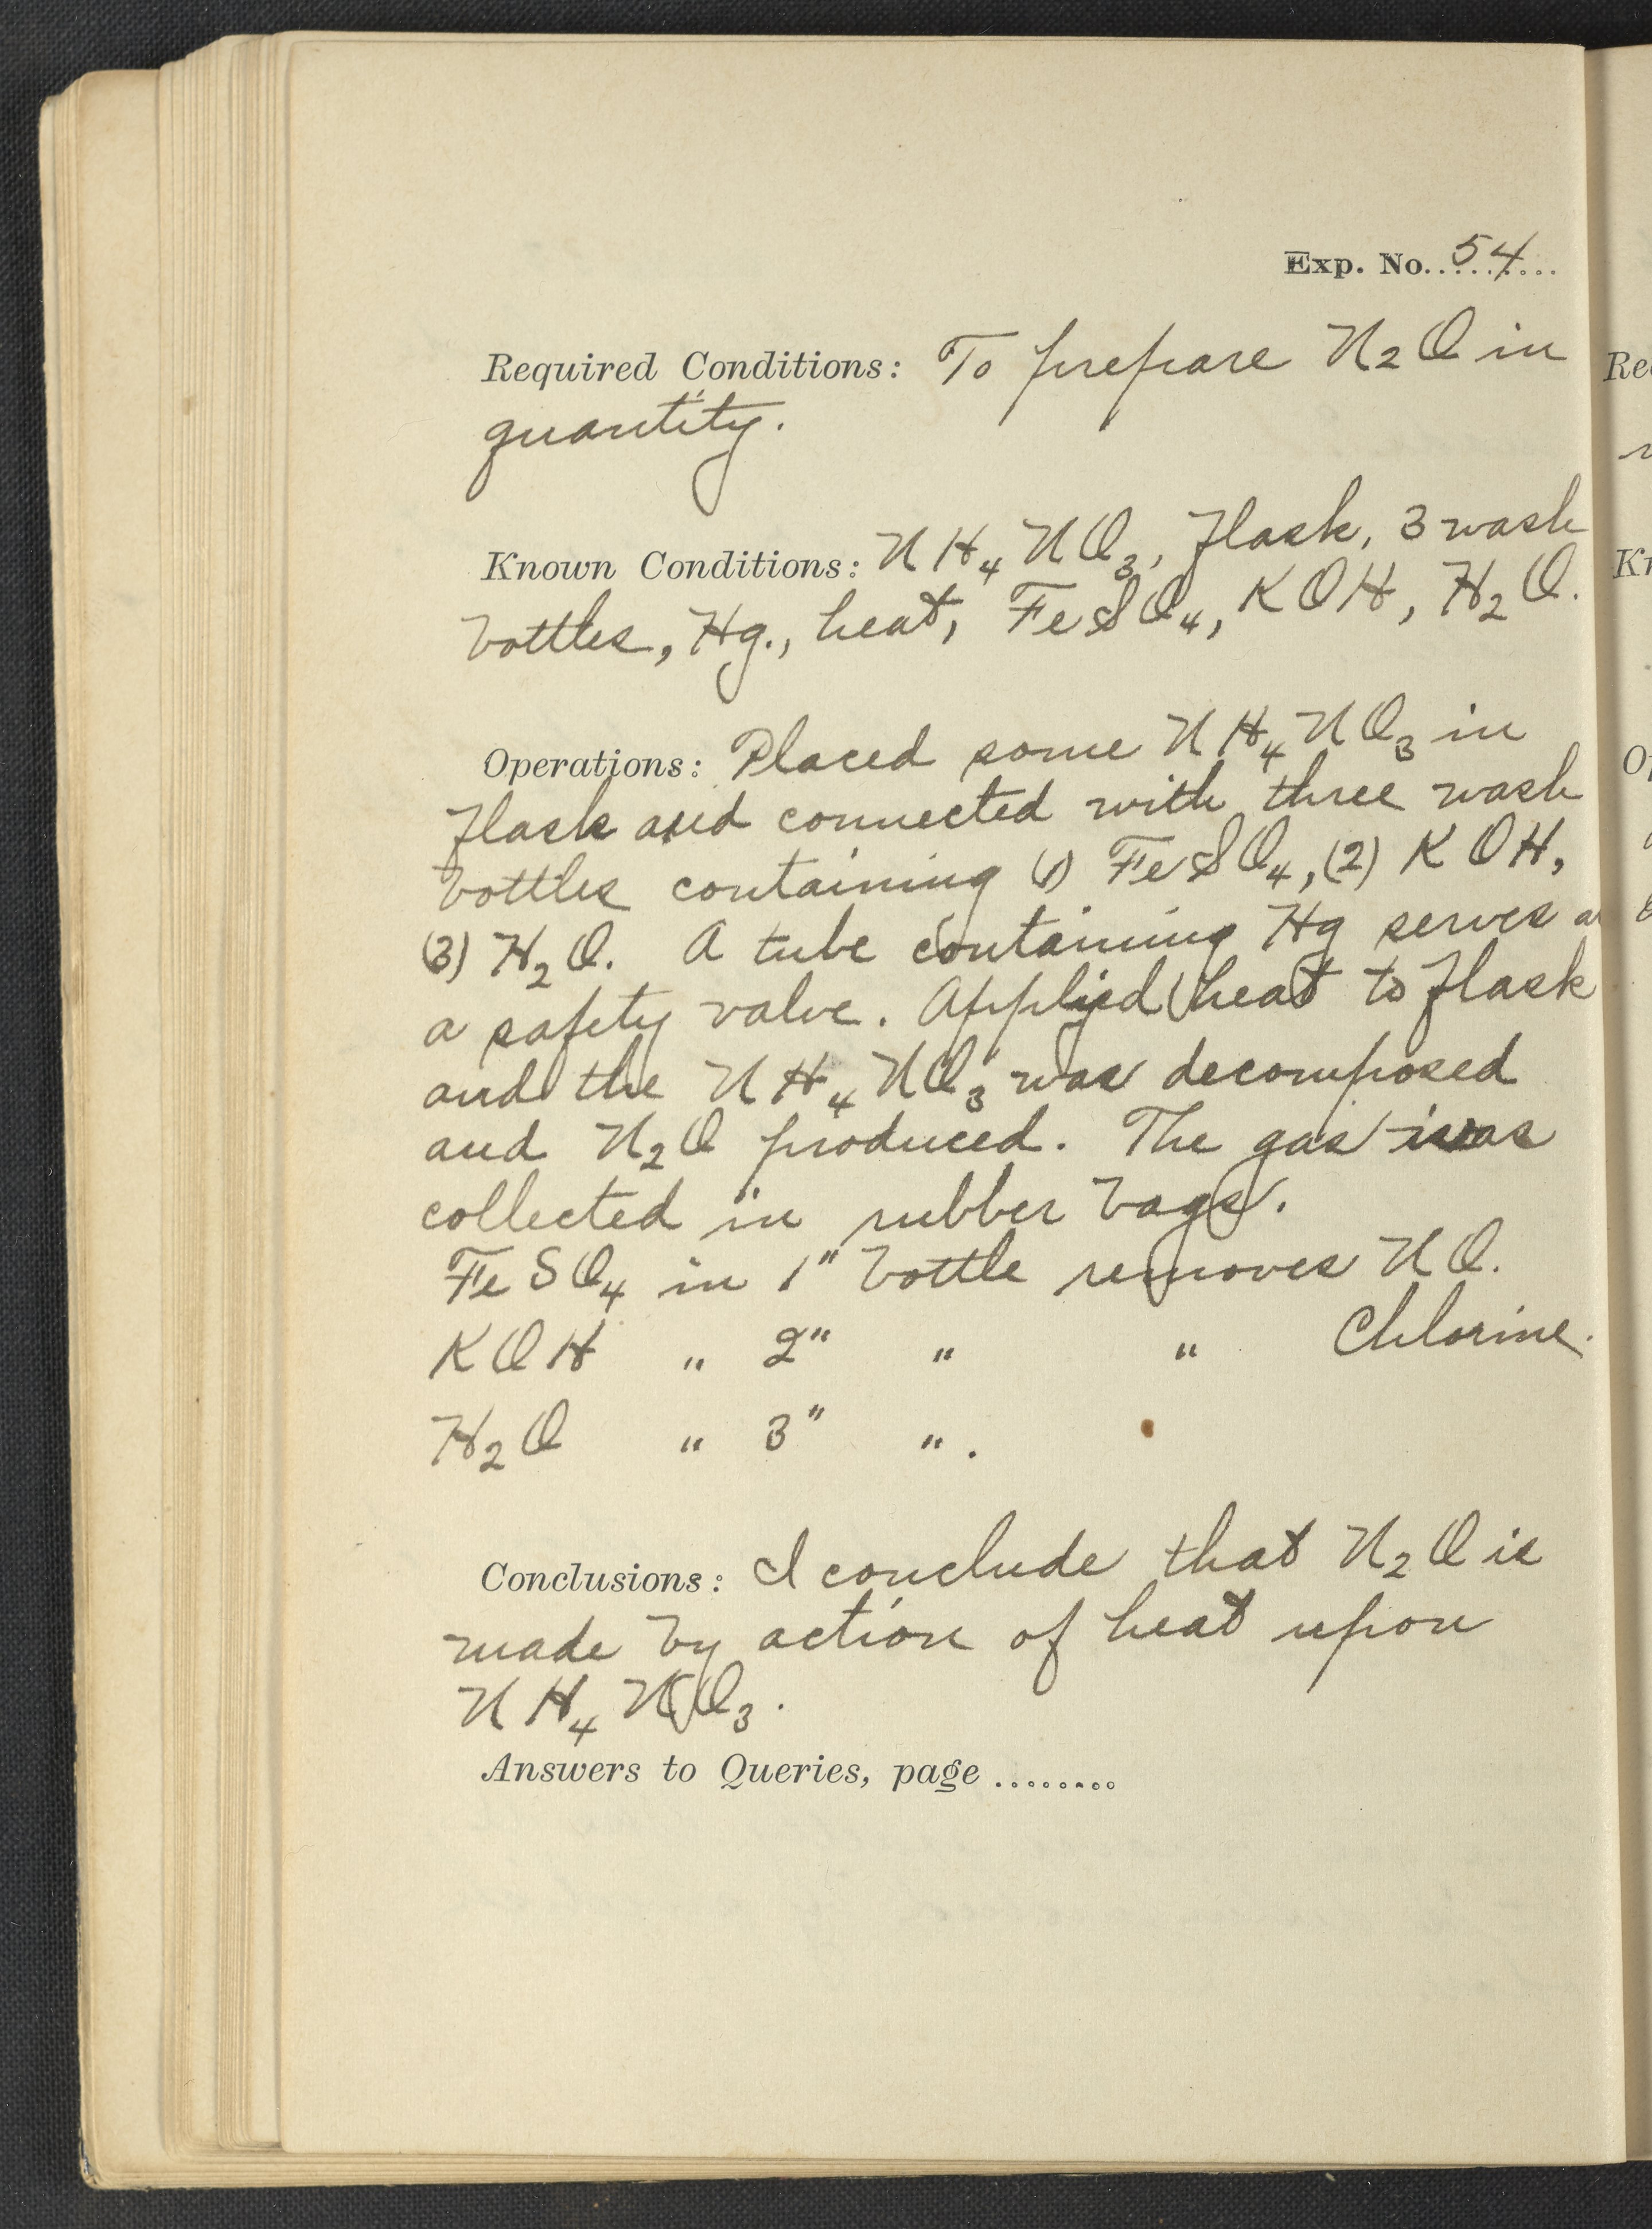 Exp. No. 54
Required Conditions: To prepare N₂O in
quantity.
Known Conditions: NH₄NO₃, Flask, 3 wash
bottles, Hg., heat, FeSO₄, KOH, H₂O.
Operations: Placed some NH₄NO₃ in
Flask and connected with three wash
bottles containing (1) FeSO₄, (2) KOH,
(3) H₂O. A tube containing Hg serves as
a safety valve. Applied heat to Flask
and the NH₄NO₃ was decomposed
and N₂O produced. The gas was
collected in rubber bags.
FeSO₄ in 1" bottle removes NO.
KOH " 2" " " Chlorine.
H₂O " 3" ".
Conclusions: I conclude that N₂O is
made by action of heat upon
NH₄NO₃.
Answers to Queries, page ........